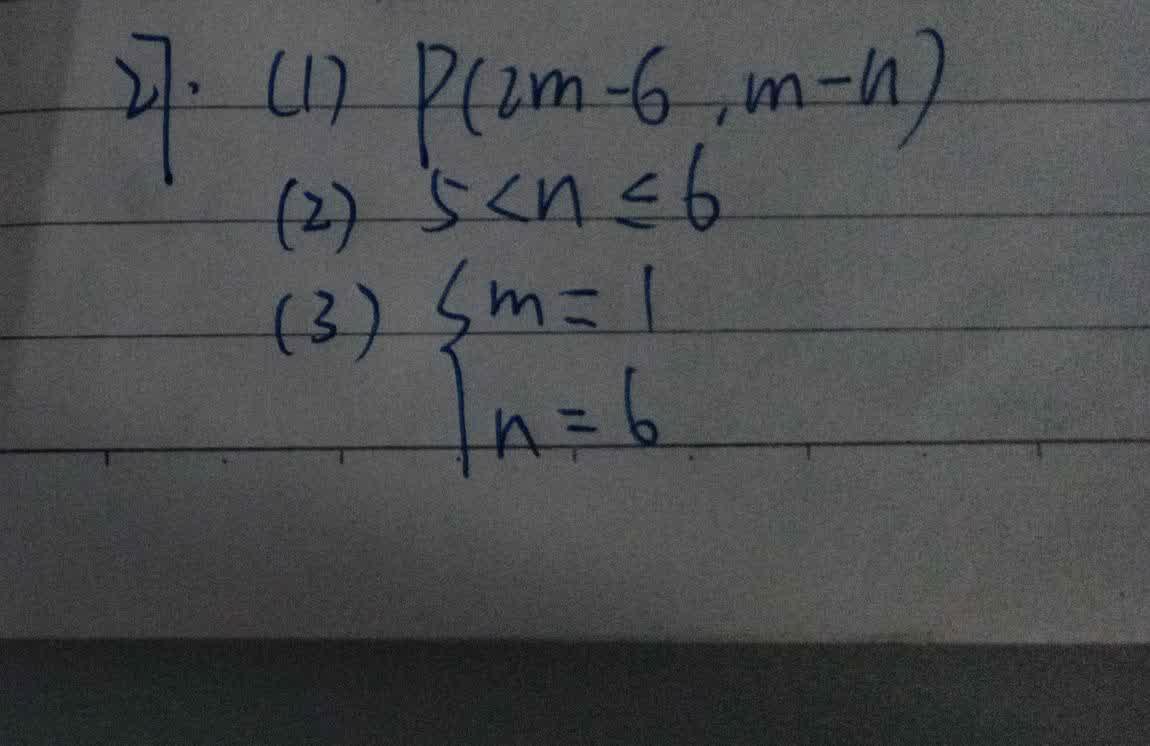 27. (1) P(2m-6, m-n)
(2) 5<n≤6
(3) { m=1
n=6